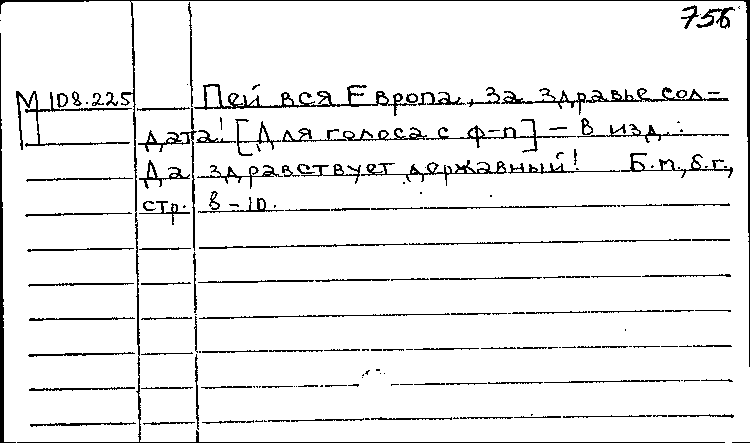 756
М 108.225 Пей вся Европа, за здравье сол=
дата! [Для голоса с ф-п] – В изд.:
Да здравствует державный! Б.м., б.г.,
стр. 8-10.